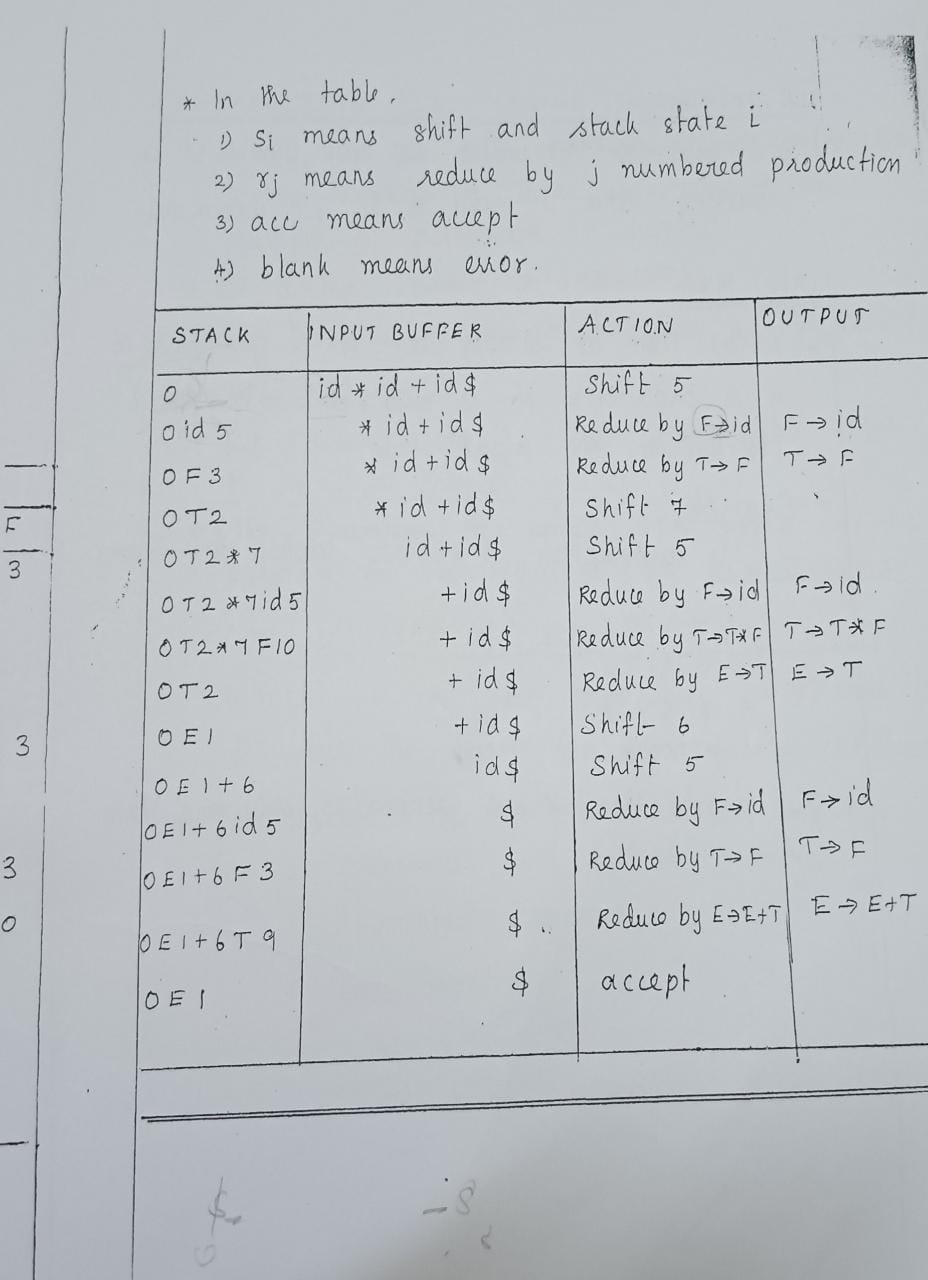 * In the table,
1) Si means shift and stack state i
2) rj means reduce by j numbered production
3) acc means accept
4) blank means error.
STACK INPUT BUFFER ACTION OUTPUT
0 id * id + id $ Shift 5
0 id 5 * id + id $ Reduce by F→id F→id
0 F 3 * id + id $ Reduce by T→F T→F
0 T 2 * id + id $ Shift 7
0 T 2 * 7 id + id $ Shift 5
0 T 2 * 7 id 5 + id $ Reduce by F→id F→id
0 T 2 * 7 F 10 + id $ Reduce by T→T*F T→T*F
0 T 2 + id $ Reduce by E→T E→T
0 E 1 + id $ Shift 6
0 E 1 + 6 id $ Shift 5
0 E 1 + 6 id 5 $ Reduce by F→id F→id
0 E 1 + 6 F 3 $ Reduce by T→F T→F
0 E 1 + 6 T 9 $ Reduce by E→E+T E→E+T
0 E 1 $ accept
F
3
3
3
0